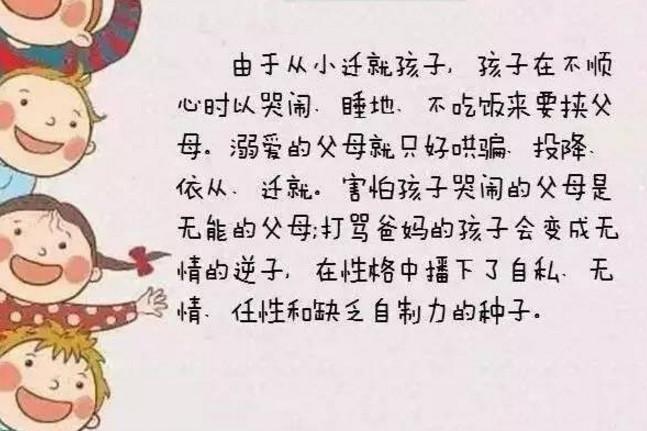 由于从小迁就孩子，孩子在不顺
心时以哭闹、睡地、不吃饭来要挟父
母。溺爱的父母就只好哄骗、投降、
依从、迁就。害怕孩子哭闹的父母是
无能的父母;打骂爸妈的孩子会变成无
情的逆子，在性格中播下了自私、无
情、任性和缺乏自制力的种子。